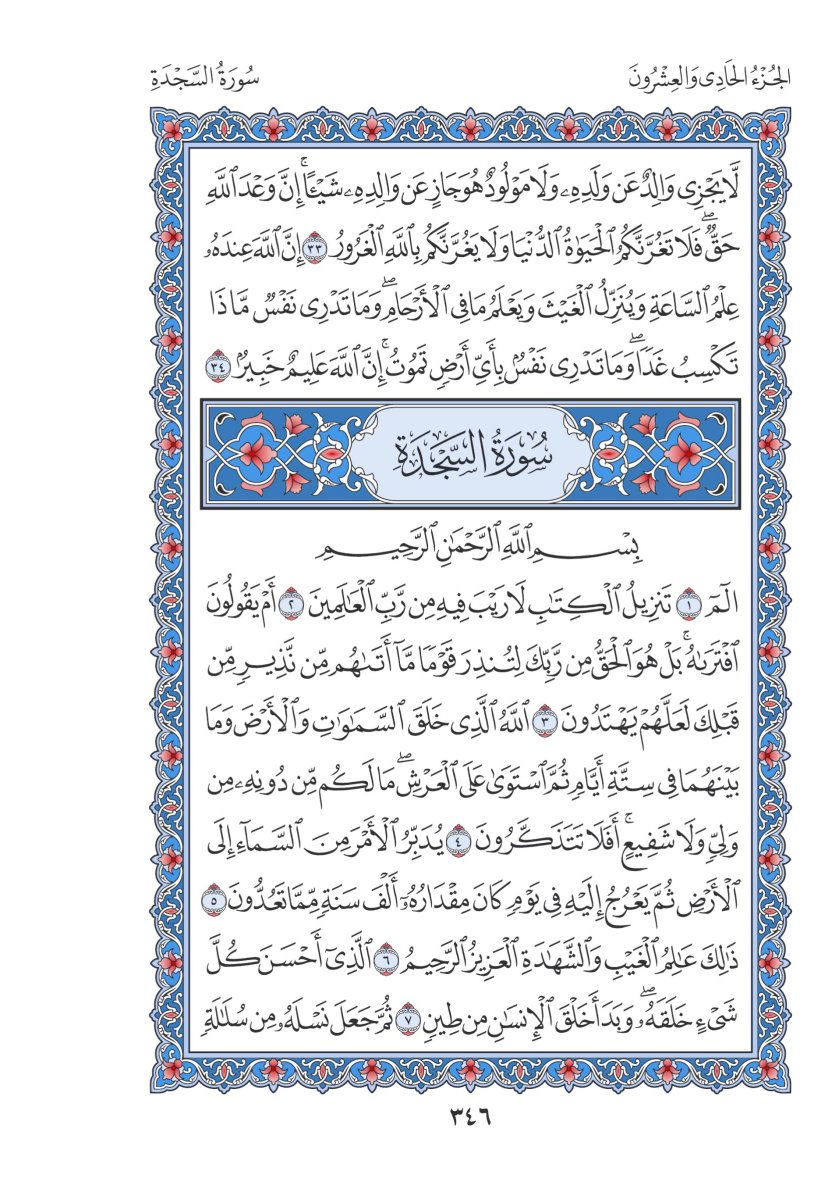 الجُزْءُ الحَادِى وَالعِشْرُونَ
سُورَةُ السَّجْدَةِ
لَّا يَجْزِى وَالِدٌ عَن وَلَدِهِۦ وَلَا مَوْلُودٌ هُوَ جَازٍ عَن وَالِدِهِۦ شَيْـًٔاۚ إِنَّ وَعْدَ ٱللَّهِ
حَقٌّۖ فَلَا تَغُرَّنَّكُمُ ٱلْحَيَوٰةُ ٱلدُّنْيَا وَلَا يَغُرَّنَّكُم بِٱللَّهِ ٱلْغَرُورُ ٣٣ إِنَّ ٱللَّهَ عِندَهُۥ
عِلْمُ ٱلسَّاعَةِ وَيُنَزِّلُ ٱلْغَيْثَ وَيَعْلَمُ مَا فِى ٱلْأَرْحَامِۖ وَمَا تَدْرِى نَفْسٌ مَّاذَا
تَكْسِبُ غَدًاۖ وَمَا تَدْرِى نَفْسٌۢ بِأَىِّ أَرْضٍ تَمُوتُۚ إِنَّ ٱللَّهَ عَلِيمٌ خَبِيرٌۢ ٣٤
سُورَةُ السَّجْدَةِ
بِسْمِ ٱللَّهِ ٱلرَّحْمَٰنِ ٱلرَّحِيمِ
الٓمٓ ١ تَنزِيلُ ٱلْكِتَٰبِ لَا رَيْبَ فِيهِ مِن رَّبِّ ٱلْعَٰلَمِينَ ٢ أَمْ يَقُولُونَ
ٱفْتَرَىٰهُۚ بَلْ هُوَ ٱلْحَقُّ مِن رَّبِّكَ لِتُنذِرَ قَوْمًا مَّآ أَتَىٰهُم مِّن نَّذِيرٍ مِّن
قَبْلِكَ لَعَلَّهُمْ يَهْتَدُونَ ٣ ٱللَّهُ ٱلَّذِى خَلَقَ ٱلسَّمَٰوَٰتِ وَٱلْأَرْضَ وَمَا
بَيْنَهُمَا فِى سِتَّةِ أَيَّامٍ ثُمَّ ٱسْتَوَىٰ عَلَى ٱلْعَرْشِۖ مَا لَكُم مِّن دُونِهِۦ مِن
وَلِىٍّ وَلَا شَفِيعٍۚ أَفَلَا تَتَذَكَّرُونَ ٤ يُدَبِّرُ ٱلْأَمْرَ مِنَ ٱلسَّمَآءِ إِلَى
ٱلْأَرْضِ ثُمَّ يَعْرُجُ إِلَيْهِ فِى يَوْمٍ كَانَ مِقْدَارُهُۥٓ أَلْفَ سَنَةٍ مِّمَّا تَعُدُّونَ ٥
ذَٰلِكَ عَٰلِمُ ٱلْغَيْبِ وَٱلشَّهَٰدَةِ ٱلْعَزِيزُ ٱلرَّحِيمُ ٦ ٱلَّذِىٓ أَحْسَنَ كُلَّ
شَىْءٍ خَلَقَهُۥۖ وَبَدَأَ خَلْقَ ٱلْإِنسَٰنِ مِن طِينٍ ٧ ثُمَّ جَعَلَ نَسْلَهُۥ مِن سُلَٰلَةٍ
٣٤٦